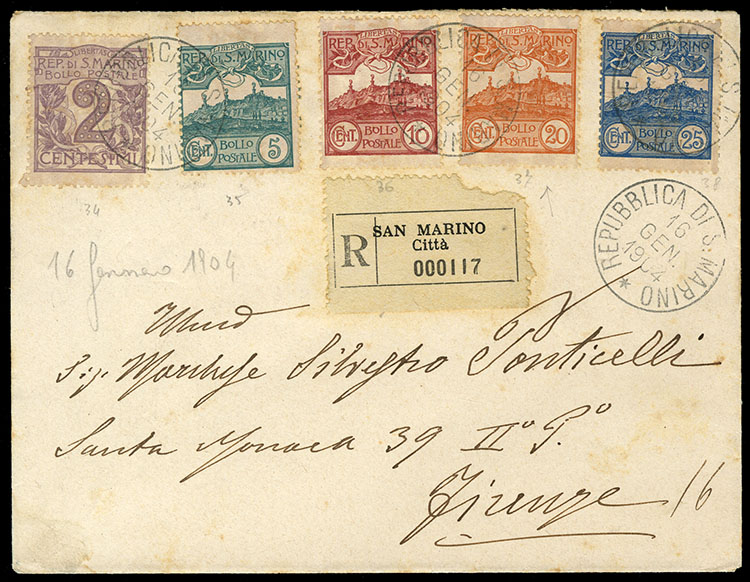 LIBERTAS
REP. DI S. MARINO
BOLLO POSTALE
2
CENTESIMI
LIBERTAS
REP. DI S. MARINO
CENT. BOLLO POSTALE 5
LIBERTAS
REP. DI S. MARINO
CENT. BOLLO POSTALE 10
LIBERTAS
REP. DI S. MARINO
CENT. BOLLO POSTALE 20
LIBERTAS
REP. DI S. MARINO
CENT. BOLLO POSTALE 25
34 35 36 37 38
R
SAN MARINO
Città
000117
REPUBBLICA DI S. MARINO
16
GEN.
1904
16 Gennaio 1904
Sig. Marchese Silvestro Ponticelli
Santa Monaca 39 IIº Pº
Firenze
16